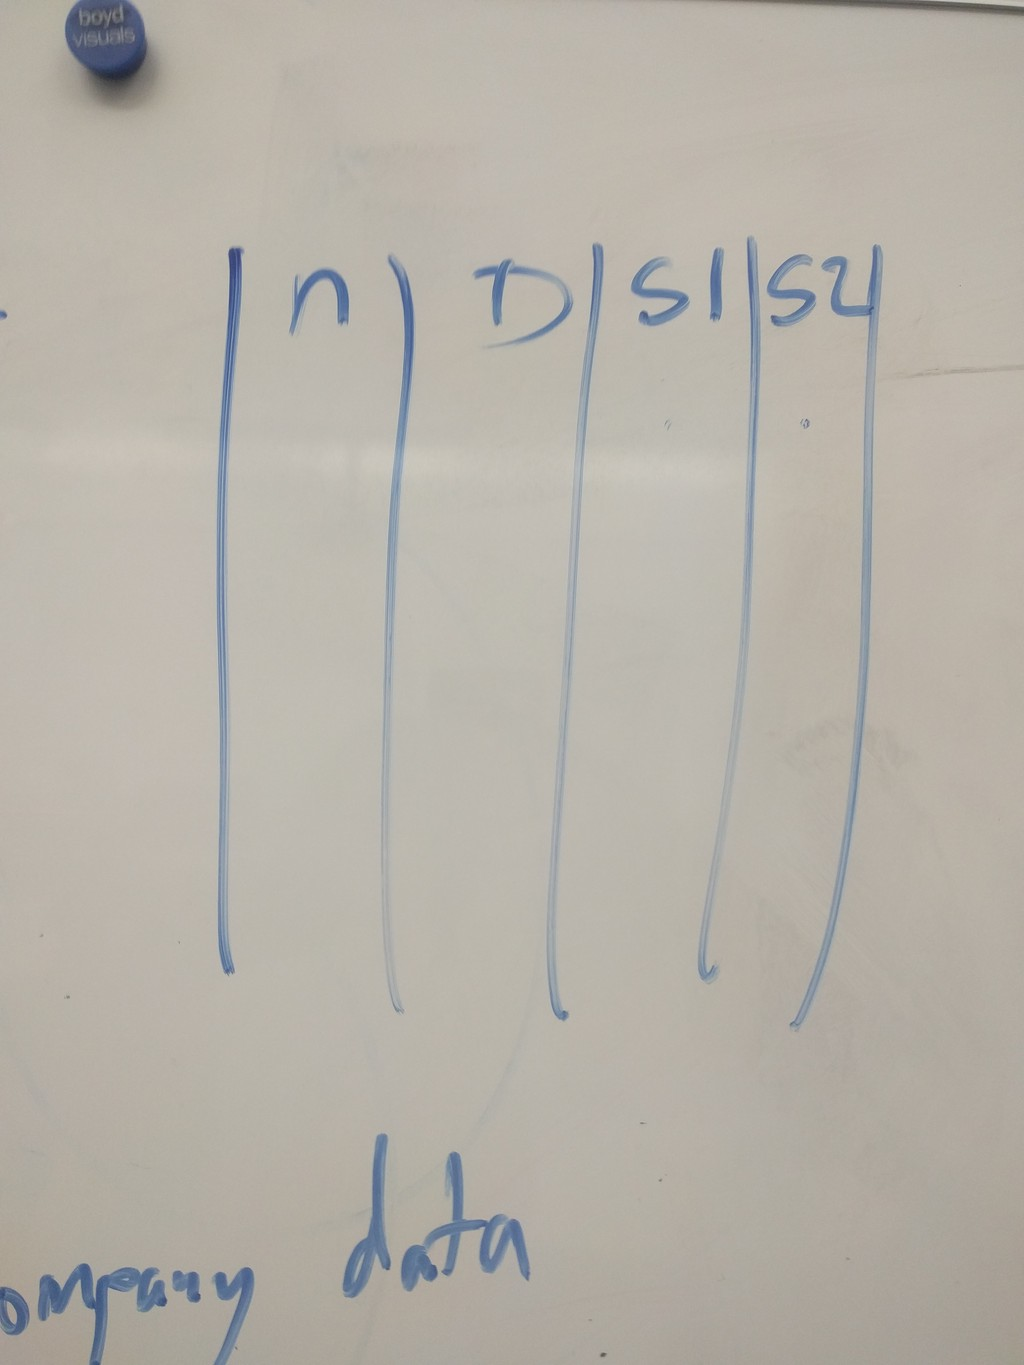 boyd
visuals
n D S1 S2
ompany data